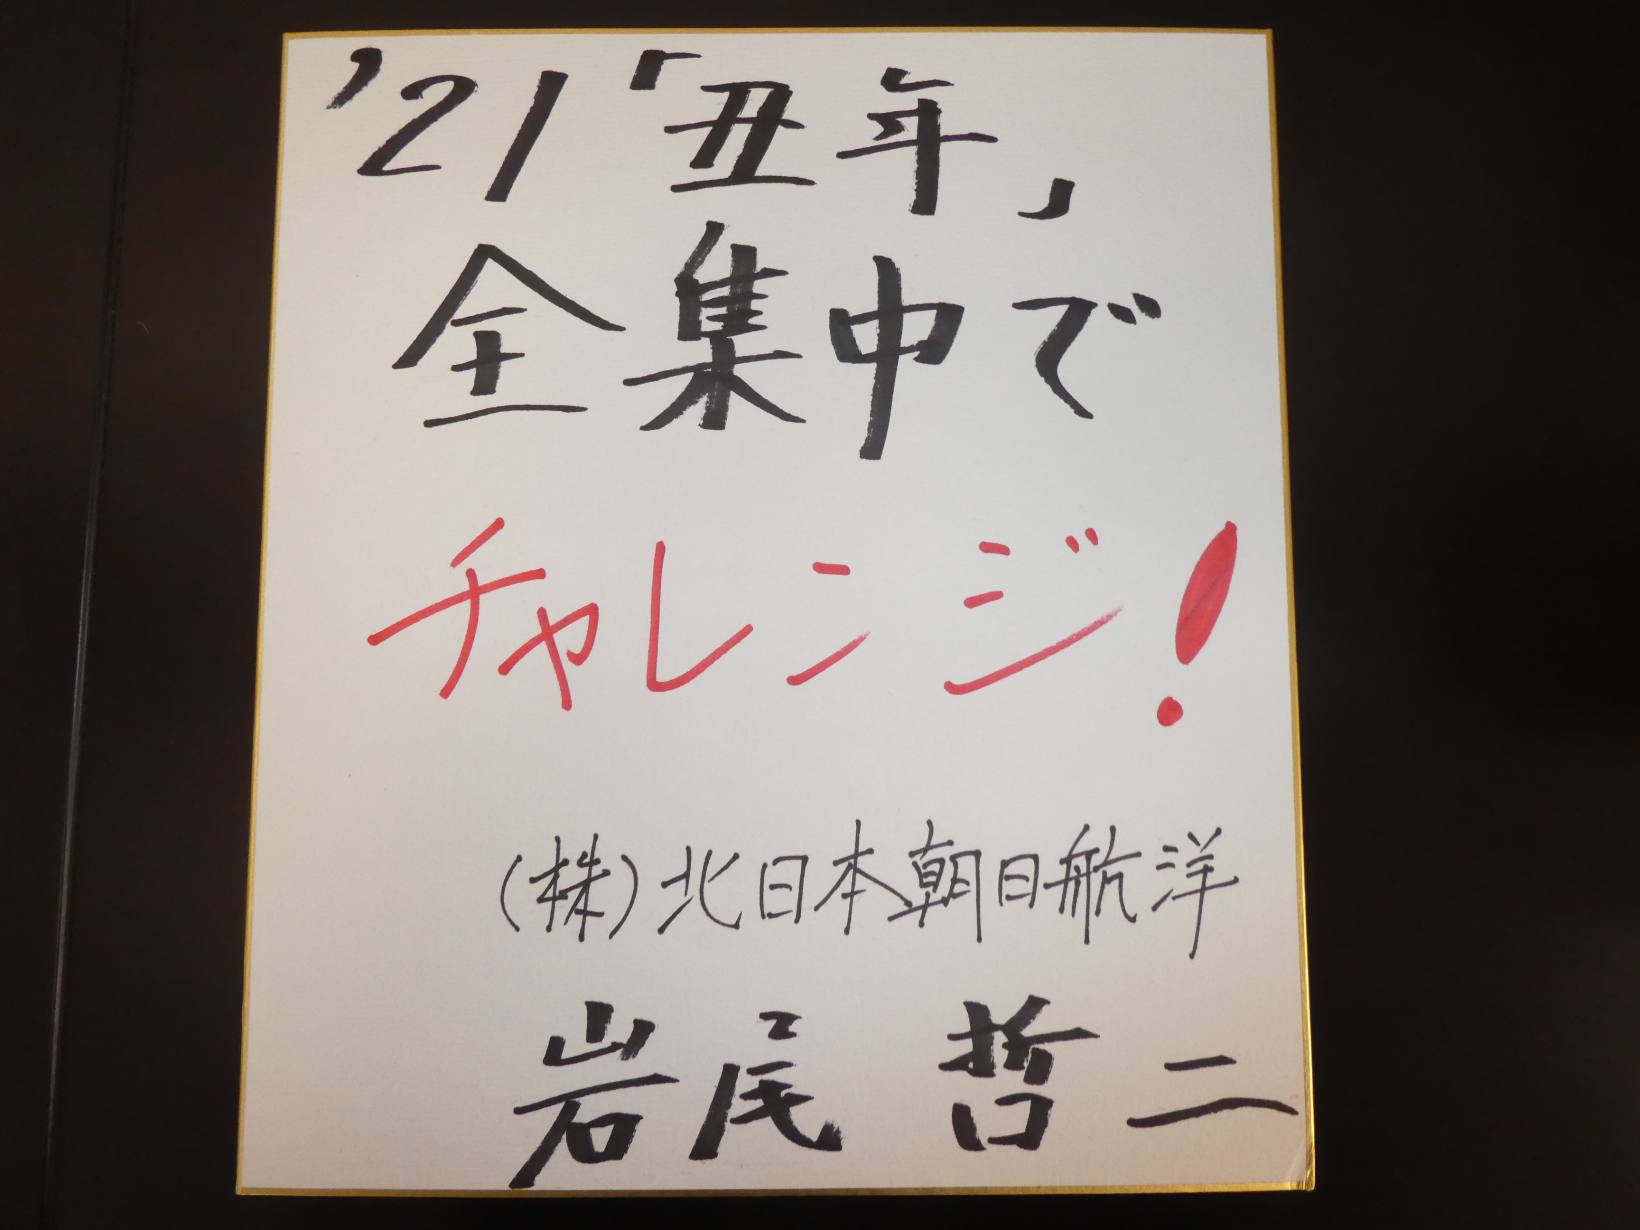 '21「丑年」
全集中で
チャレンジ!
(株)北日本朝日航洋
岩尾 哲二